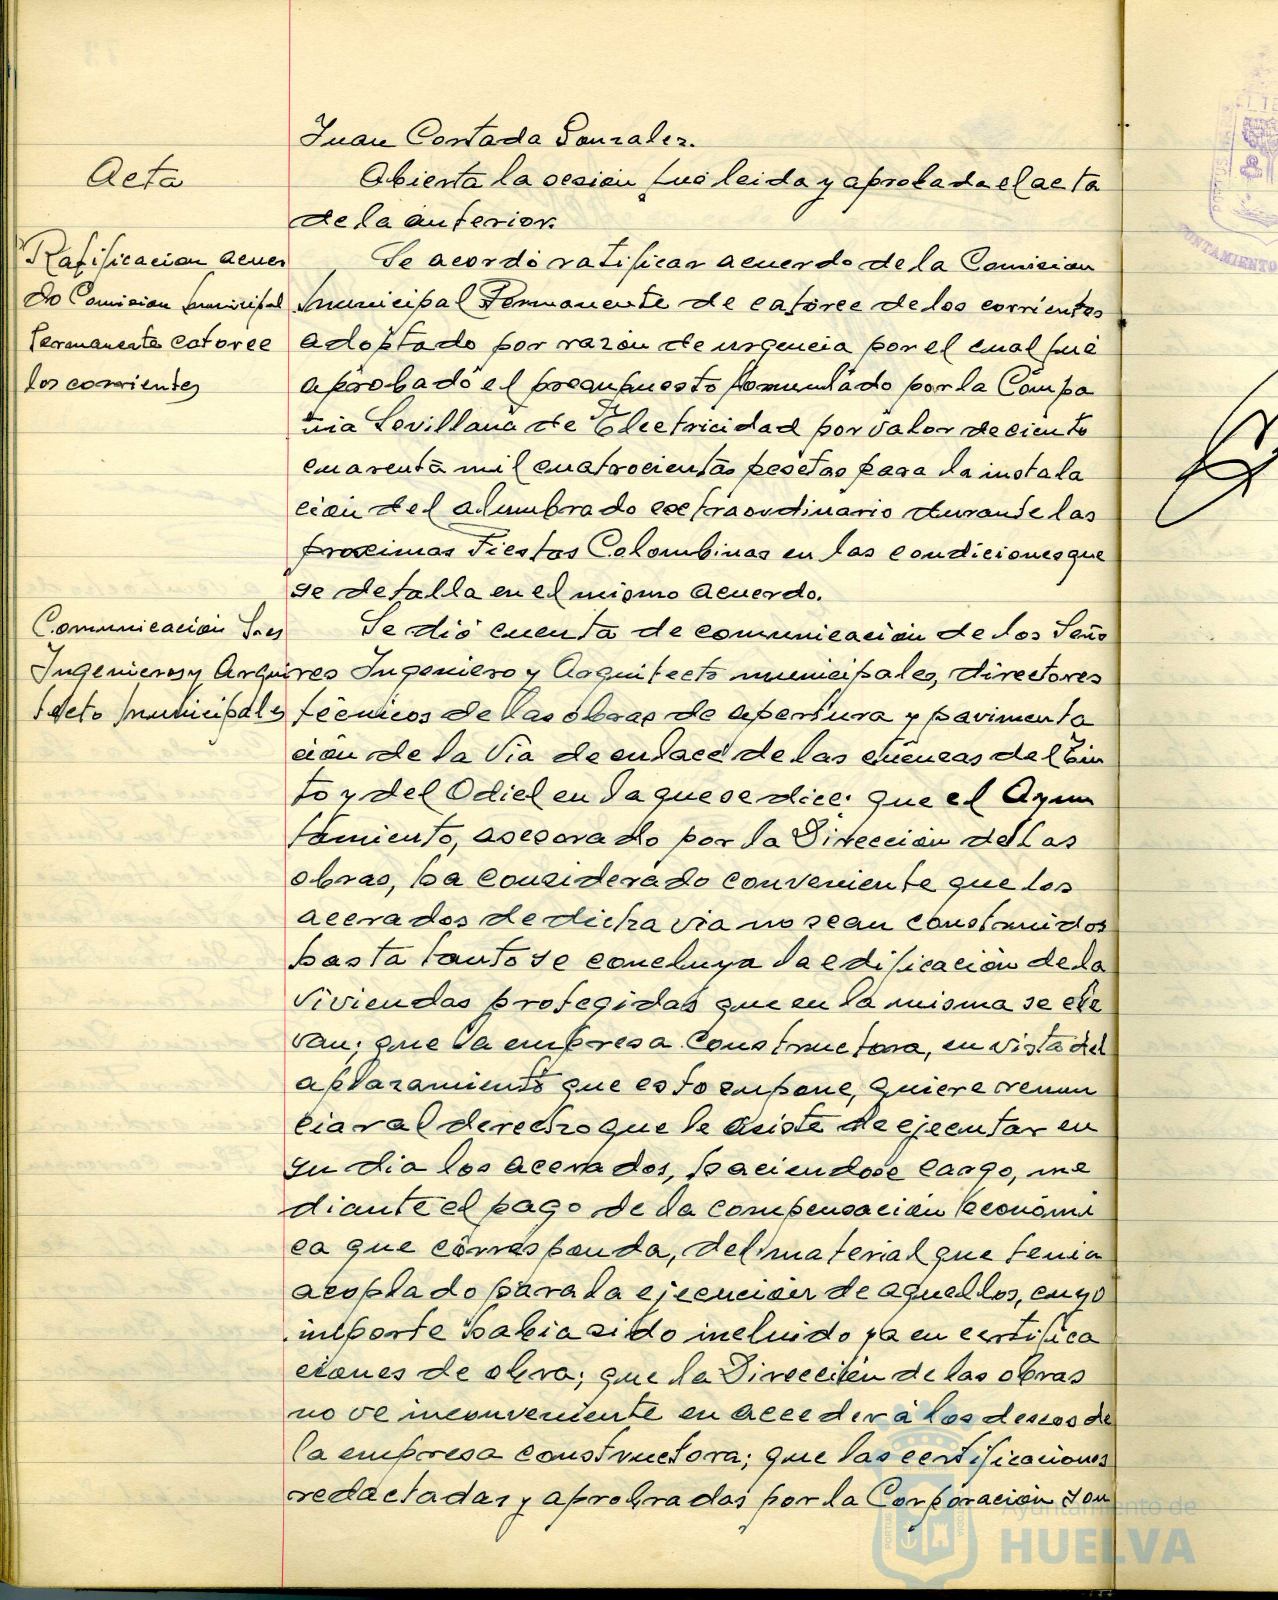 Juan Cortada Gonzalez.
Acta
Abierta la sesión fué leida y aprobada el acta
de la anterior.
Ratificacion acuer
do Comision municipal
Permanente catorce
los corrientes
Se acordó ratificar acuerdo de la Comision
municipal Permanente de catorce de los corrientes
adoptado por razón de urgencia por el cual fué
aprobado el presupuesto formulado por la Compa
ñia Sevillana de Electricidad por valor de ciento
cuarenta mil cuatrocientas pesetas para la instala
ción del alumbrado extraordinario durante las
proximas Fiestas Colombinas en las condiciones que
se detalla en el mismo acuerdo.
Comunicación Sres
Ingenieros y Arqui
tecto municipales
Se dió cuenta de comunicación de los Seño
res Ingeniero y Arquitecto municipales, directores
técnicos de las obras de apertura y pavimenta
ción de la Via de enlace de las cuencas del Tin
to y del Odiel en la que se dice: que el Ayun
tamiento, asesorado por la Dirección de las
obras, ha considerado conveniente que los
acerados de dicha via no sean construidos
hasta tanto se concluya la edificación de la
viviendas protegidas que en la misma se ele
van; que la empresa constructora, en vista del
aplazamiento que esto supone, quiere renun
ciar al derecho que le asiste de ejecutar en
su dia los acerados, haciendose cargo, me
diante el pago de la compensación económi
ca que corresponda, del material que tenia
acoplado para la ejecución de aquellos, cuyo
importe habia sido incluido ya en certifica
ciones de obra; que la Dirección de las obras
no ve inconveniente en acceder á los deseos de
la empresa constructora; que las certificaciones
redactadas y aprobradas por la Corporación son
Ayuntamiento de
HUELVA